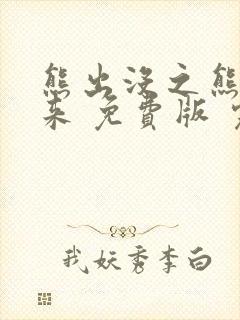 熊出没之熊
来 免費版
我妖秀李白